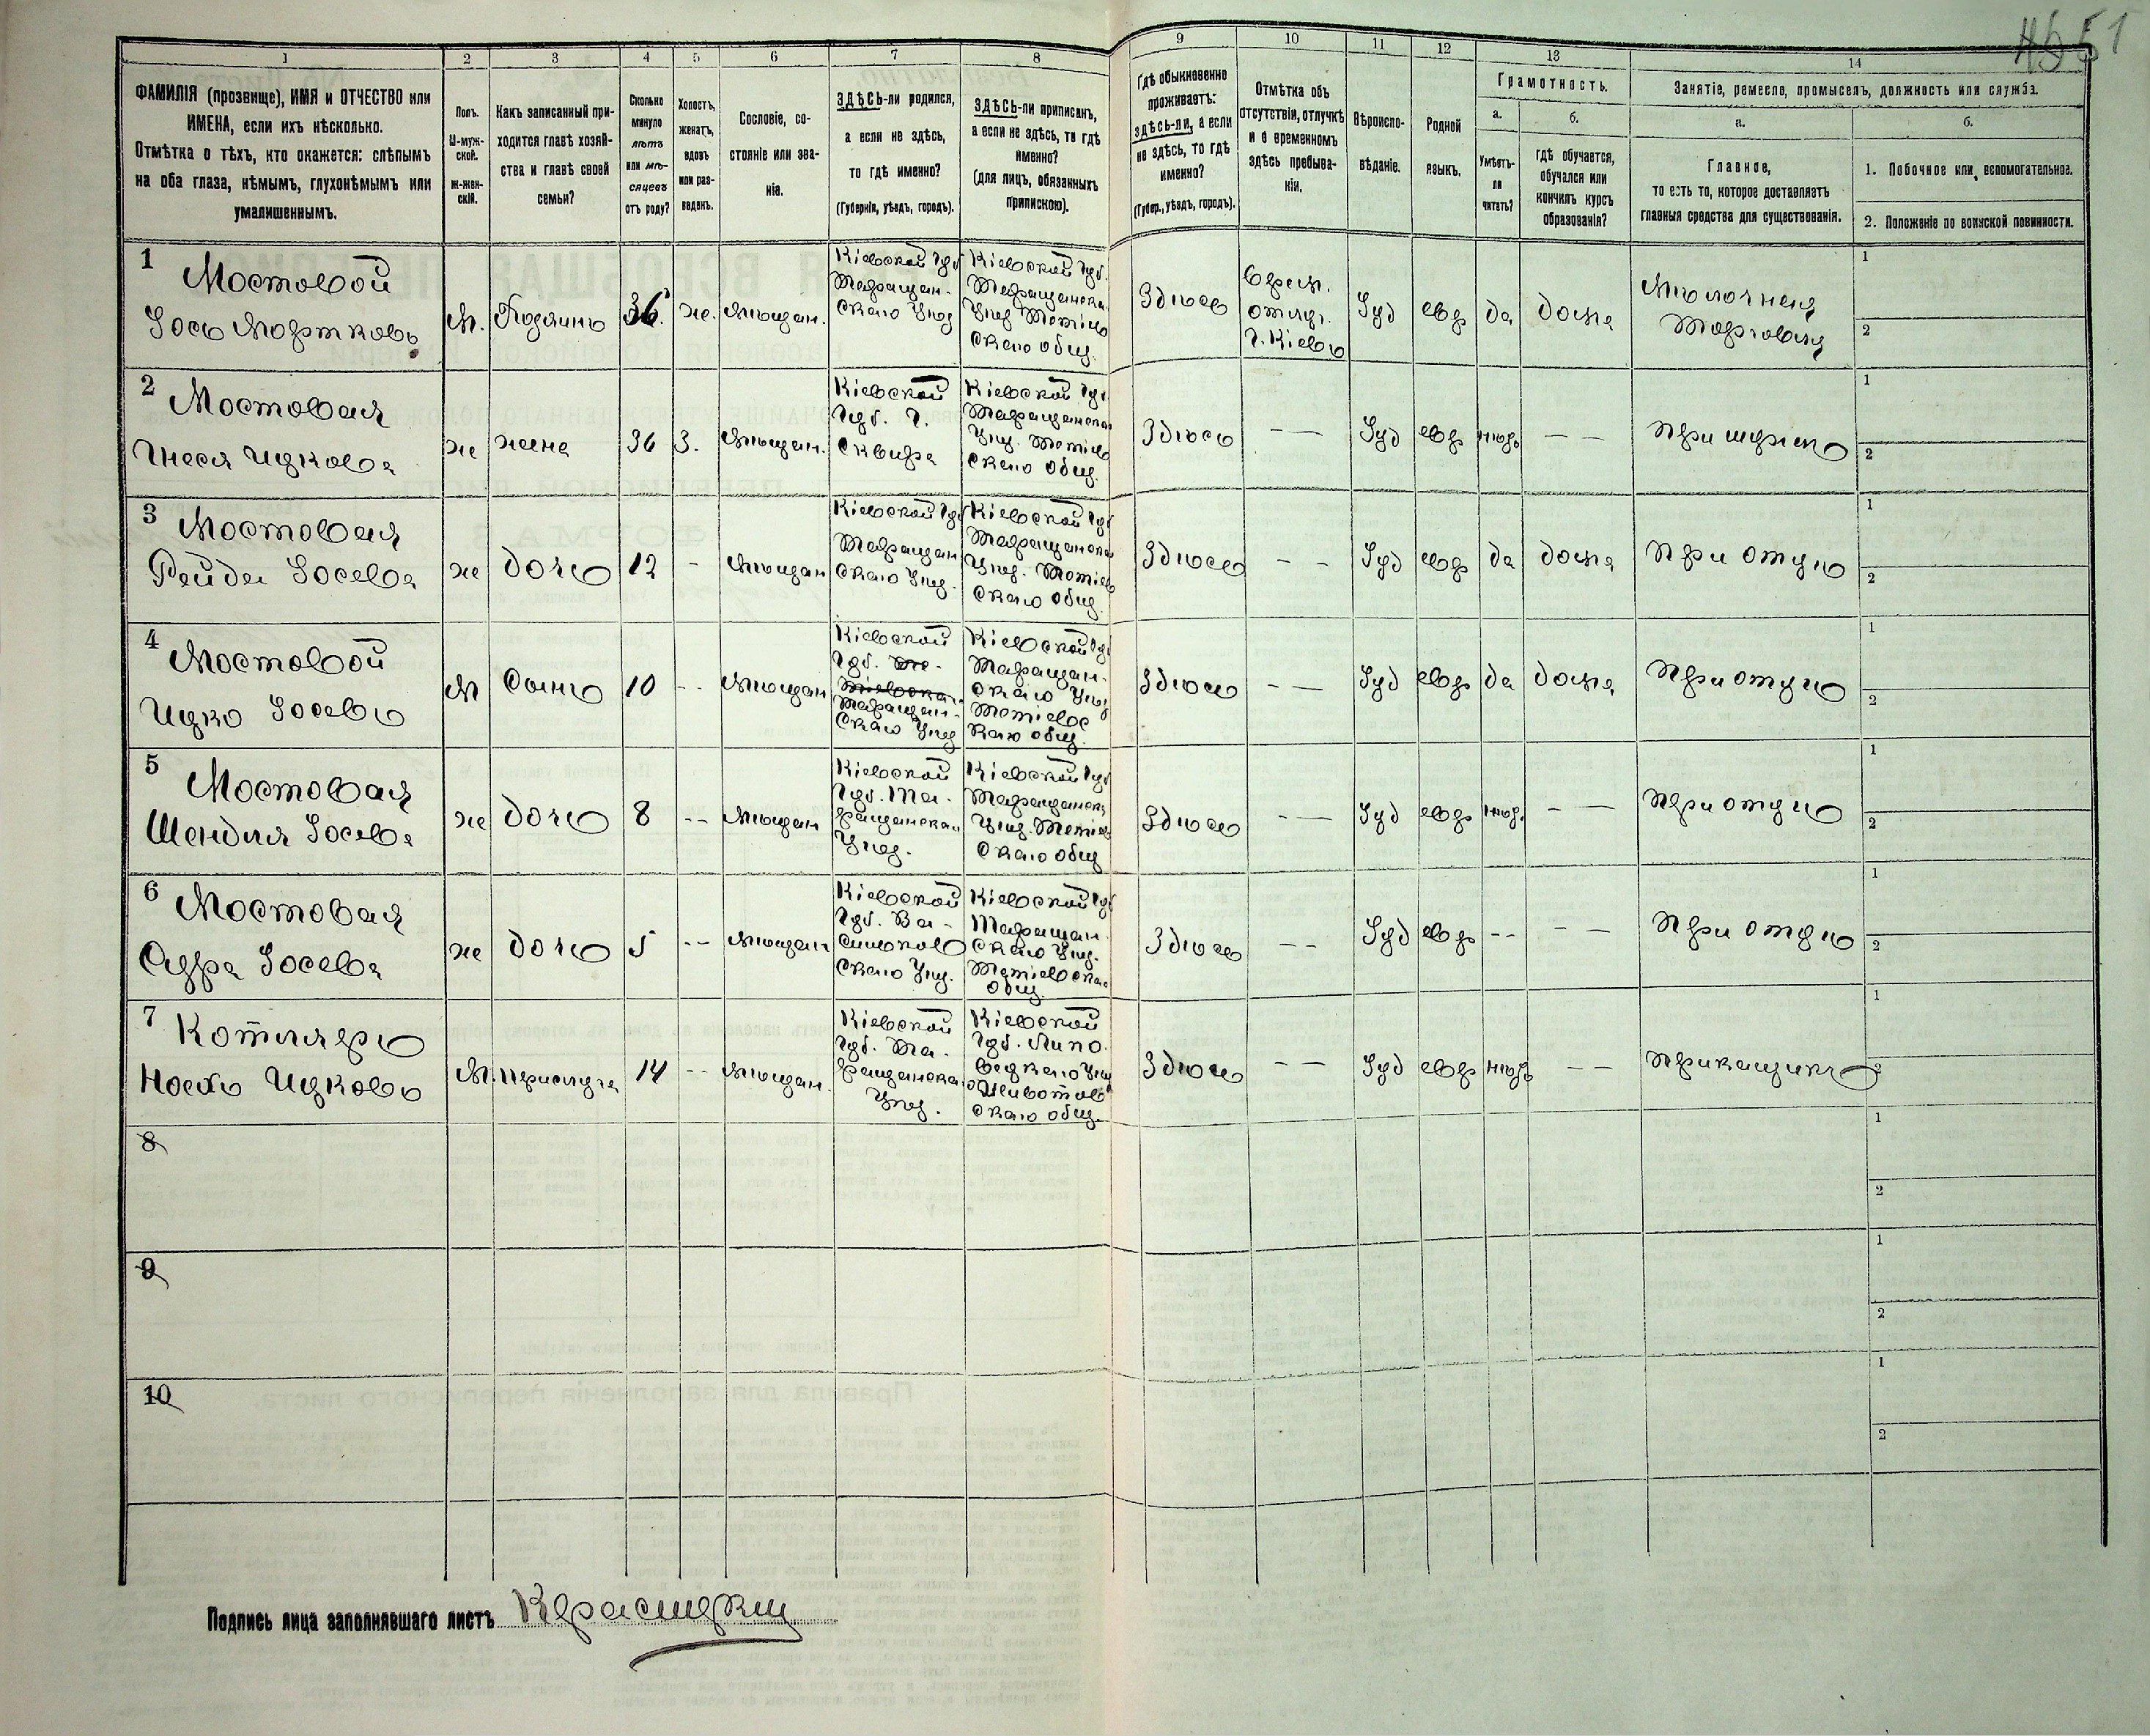 4551
1 2 3 4 5 6 7 8 9 10 11 12 13 14
ФАМИЛІЯ (прозвище), ИМЯ и ОТЧЕСТВО или
ИМЕНА, если ихъ нѣсколько.
Отмѣтка о тѣхъ, кто окажется: слѣпымъ
на оба глаза, нѣмымъ, глухонѣмымъ или
умалишеннымъ.
Полъ.
М-муж-
ской.
Ж-жен-
скій.
Какъ записанный при-
ходится главѣ хозяй-
ства и главѣ своей
семьи?
Сколько
минуло
лѣтъ
или мѣ-
сяцевъ
отъ роду?
Холостъ,
женатъ,
вдовъ
или раз-
веденъ.
Сословіе, со-
стояніе или зва-
ніе.
ЗДѢСЬ-ли родился,
а если не здѣсь,
то гдѣ именно?
(Губернія, уѣздъ, городъ).
ЗДѢСЬ-ли приписанъ,
а если не здѣсь, то гдѣ
именно?
(для лицъ, обязанныхъ
припискою).
Гдѣ обыкновенно
проживаетъ:
здѣсь-ли, а если
не здѣсь, то гдѣ
именно?
(Губер., уѣздъ, городъ).
Отмѣтка объ
отсутствіи, отлучкѣ
и о временномъ
здѣсь пребыва-
ніи.
Вѣроиспо-
вѣданіе.
Родной
языкъ.
Грамотность.
а.
Умѣетъ-
ли
читать?
б.
гдѣ обучается,
обучался или
кончилъ курсъ
образованія?
Занятіе, ремесло, промыселъ, должность или служба.
а.
Главное,
то есть то, которое доставляетъ
главныя средства для существованія.
б.
1. Побочное или вспомогательное.
2. Положеніе по воинской повинности.
1
Мостовой
Іось Мортковъ
М.
Хозяинъ
36
же.
Мѣщан.
Кіевской Губ
Таращан-
скаго Уѣз
Кіевской Губ.
Таращанска
Уѣз. Тетіев
скаго общ.
Здѣсь
врем.
отлуч.
г. Кіевъ
Іуд
евр
да
дома
Молочная
Торговля
1
2
2
Мостовая
Гнеся Ицкова
же
жена
36
З.
Мѣщан.
Кіевской
Губ. г.
Сквира
Кіевской Губ
Таращанска
Уѣз. Тетіев
скаго Общ.
Здѣсь
— —
Іуд
евр
негр.
— —
При мужѣ
1
2
3
Мостовая
Рейдя Іосева
же
дочь
12
-
Мѣщан
Кіевской Губ
Таращан
скаго Уѣз.
Кіевской Губ
Таращанска
Уѣз. Тетіев
скаго Общ.
Здѣсь
- —
Іуд
евр
да
дома
При отцѣ
1
2
4
Мостовой
Ицко Іосевъ
М
Сынъ
10
--
Мѣщан
Кіевской
Губ.
Таращан-
скаго Уѣз
Кіевской Губ
Таращан-
скаго Уѣз
Тетіевс
каго общ.
Здѣсь
- —
Іуд
евр
да
дома
При отцѣ
1
2
5
Мостовая
Шендля Іосева
же
дочь
8
--
Мѣщан
Кіевской
Губ. Та-
ращанскаго
Уѣз.
Кіевской Губ
Таращанск
Уѣз. Тетіев
скаго общ
Здѣсь
- —
Іуд
евр
негр.
- —
При отцѣ
1
2
6
Мостовая
Сура Іосева
же
дочь
5
--
Мѣщан
Кіевской
Губ. Ва-
сильков
скаго Уѣз.
Кіевской Губ
Таращан
скаго Уѣз.
Тетіевска
общ.
Здѣсь
--
Іуд
евр
--
- —
При отцѣ
1
2
7
Котляръ
Носхъ Ицковъ
М.
прислуга
14
--
Мѣщан.
Кіевской
Губ. Та-
ращанска
Уѣз.
Кіевской
Губ. Липо
вецкаго Уѣз
Животов
скаго общ.
Здѣсь
- —
Іуд
евр
негр
— —
Прикащикъ
1
2
8
1
2
9
1
2
10
1
2
Подпись лица заполнявшаго листъ Красицкій